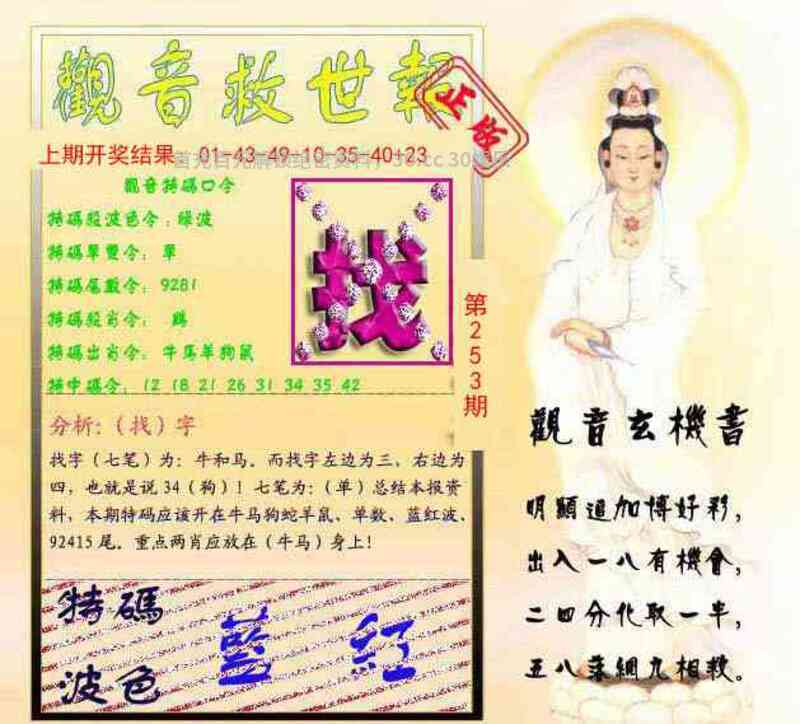 觀音救世報
正版
上期开奖结果 01-43-49-10-35-40+23
觀音特碼口令
特碼殺波色令:綠波
特碼單雙令:單
特碼尾數令:9281
特碼殺肖令:鷄
特碼出肖令:牛馬羊狗鼠
特中碼令:12 18 21 26 31 34 35 42
找
第253期
分析:(找)字
找字(七笔)为:牛和马.而找字左边为三,右边为
四,也就是说34(狗)!七笔为:(单)总结本报资
料,本期特码应该开在牛马狗蛇羊鼠、单数、蓝红波、
92415尾.重点两肖应放在(牛马)身上!
特碼
波色
藍 紅
觀音玄機書
明顯追加博好彩,
出入一八有機會,
二四分化取一半,
五八落網九相救。